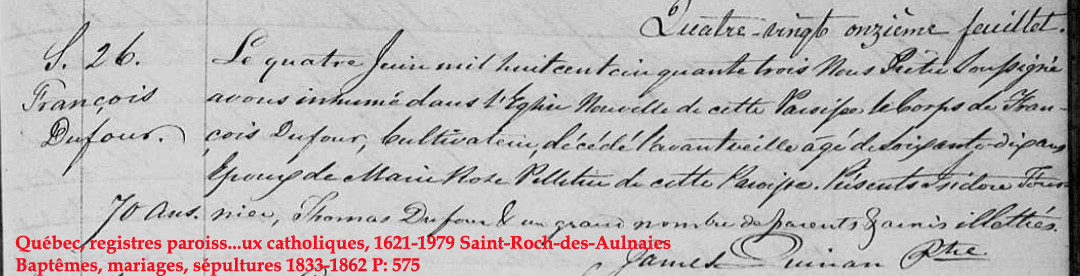 Quatre-vingt onzième feuillet.
S. 26.
François
Dufour.
70 Ans.
Le quatre Juin mil huit cent cinquante trois Nous Prêtre Soussigné
avons inhumé dans l'Eglise Nouvelle de cette Paroisse le Corps de Fran-
çois Dufour, Cultivateur, décédé l'avant veille agé de soixante-dix ans
Epoux de Marie Rose Pelletier de cette Paroisse. Présents Isidore Four-
nier, Thomas Dufour & un grand nombre de parents & amis illettrés.
James Quinan Ptre
Québec, registres paroiss...ux catholiques, 1621-1979 Saint-Roch-des-Aulnaies
Baptêmes, mariages, sépultures 1833-1862 P: 575